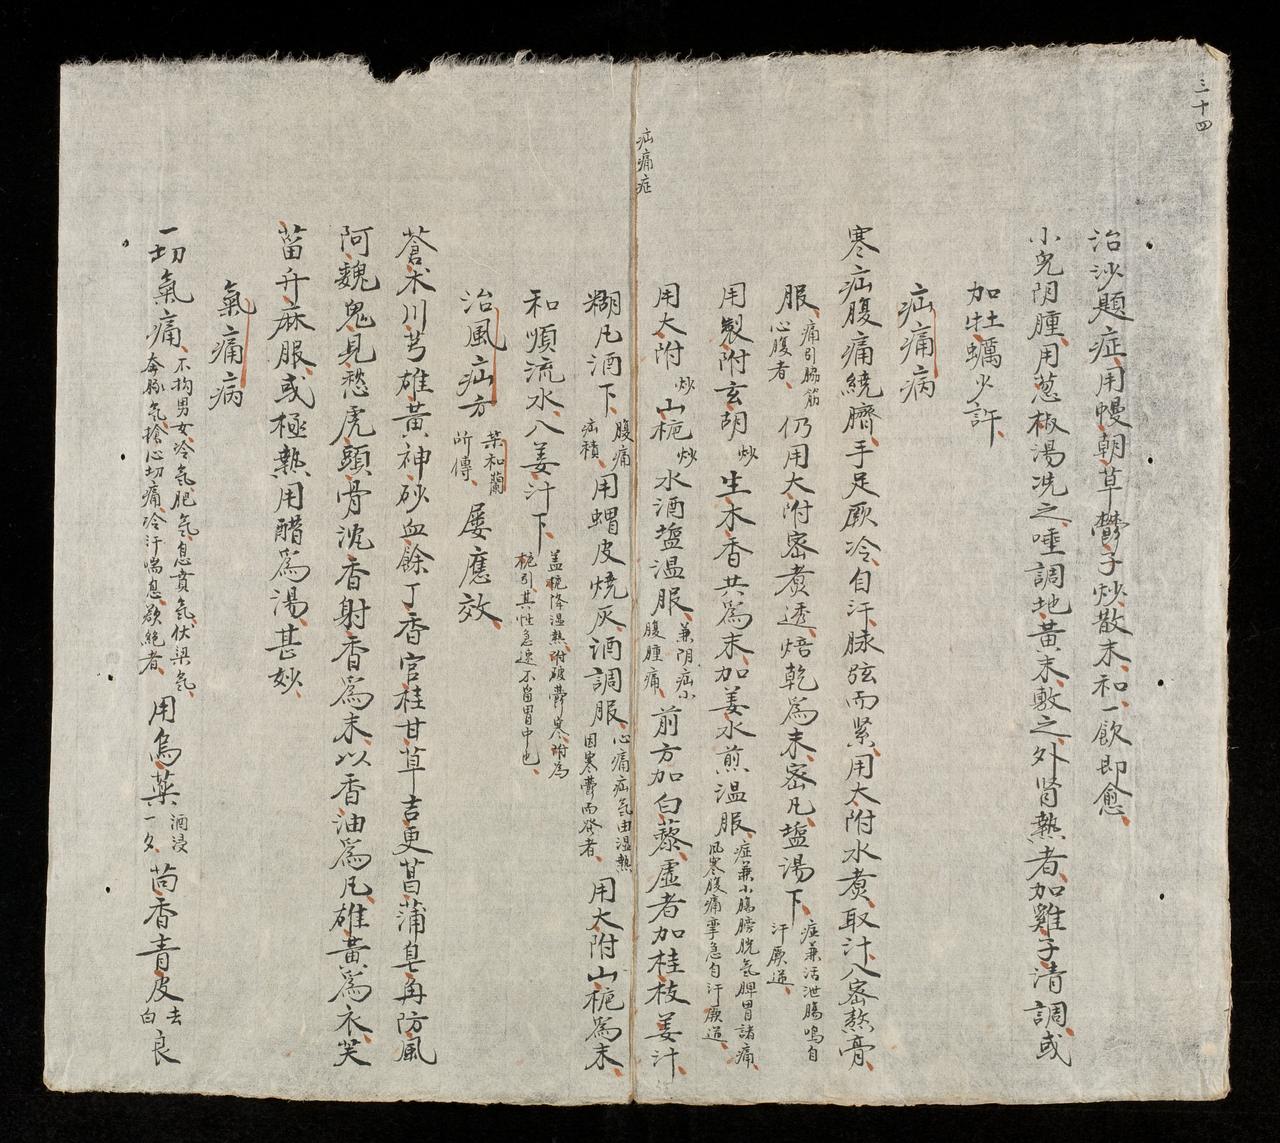 三十四
治沙題症用幔朝草鬱子炒散末和一飲即愈
小兒阴腫用葱椒湯洗之唾調地黃末敷之外肾熱者加雞子清調或
加牡蠣少許
疝痛病
寒疝腹痛繞臍手足厥冷自汗脉弦而緊用大附水煮取汁入密熬膏
服痛引脇筋心腹者仍用大附密煮透焙乾為末密凡塩湯下症兼活泄腸鳴自汗厥逆
用製附玄胡炒生木香共為末加姜水煎温服症兼小腸膀胱氣脾胃諸痛風寒腹痛挛急自汗厥逆
用大附炒山梔炒水酒塩温服兼阴疝小腹腫痛前方加白藜虛者加桂枝姜汁
疝痛症
糊凡酒下腹痛疝積用蝟皮烧灰酒調服心痛疝气由温熱因寒鬱而發者用大附山梔為末
和順流水入姜汁下盖梔降温熱附破鬱寒附為梔引其性急速不留胃中也
治風疝方某和蘭所傳屡應效
蒼术川芎雄黃神砂血餘丁香官桂甘草吉更菖蒲皂角防風
阿魏鬼見愁虎頭骨沈香射香為末以香油為凡雄黃為衣芙
菑升麻服或極熱用醋為湯甚妙
氣痛病
一切氣痛不拘男女冷氣肥氣息賁氣伏梁氣奔豚气搶心切痛冷汗喘息欲絕者用烏薬酒浸一夕茴香青皮去白良